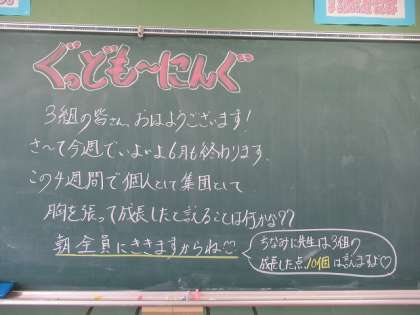 ぐっども〜にんぐ
3組の皆さん、おはようございます!
さ〜て今週でいよいよ6月も終わります。
この4週間で個人として集団として
胸を張って成長したと言えることは何かな??
朝全員にききますからね♡
ちなみに先生は3組の
成長した点、10個は言えますよ♡